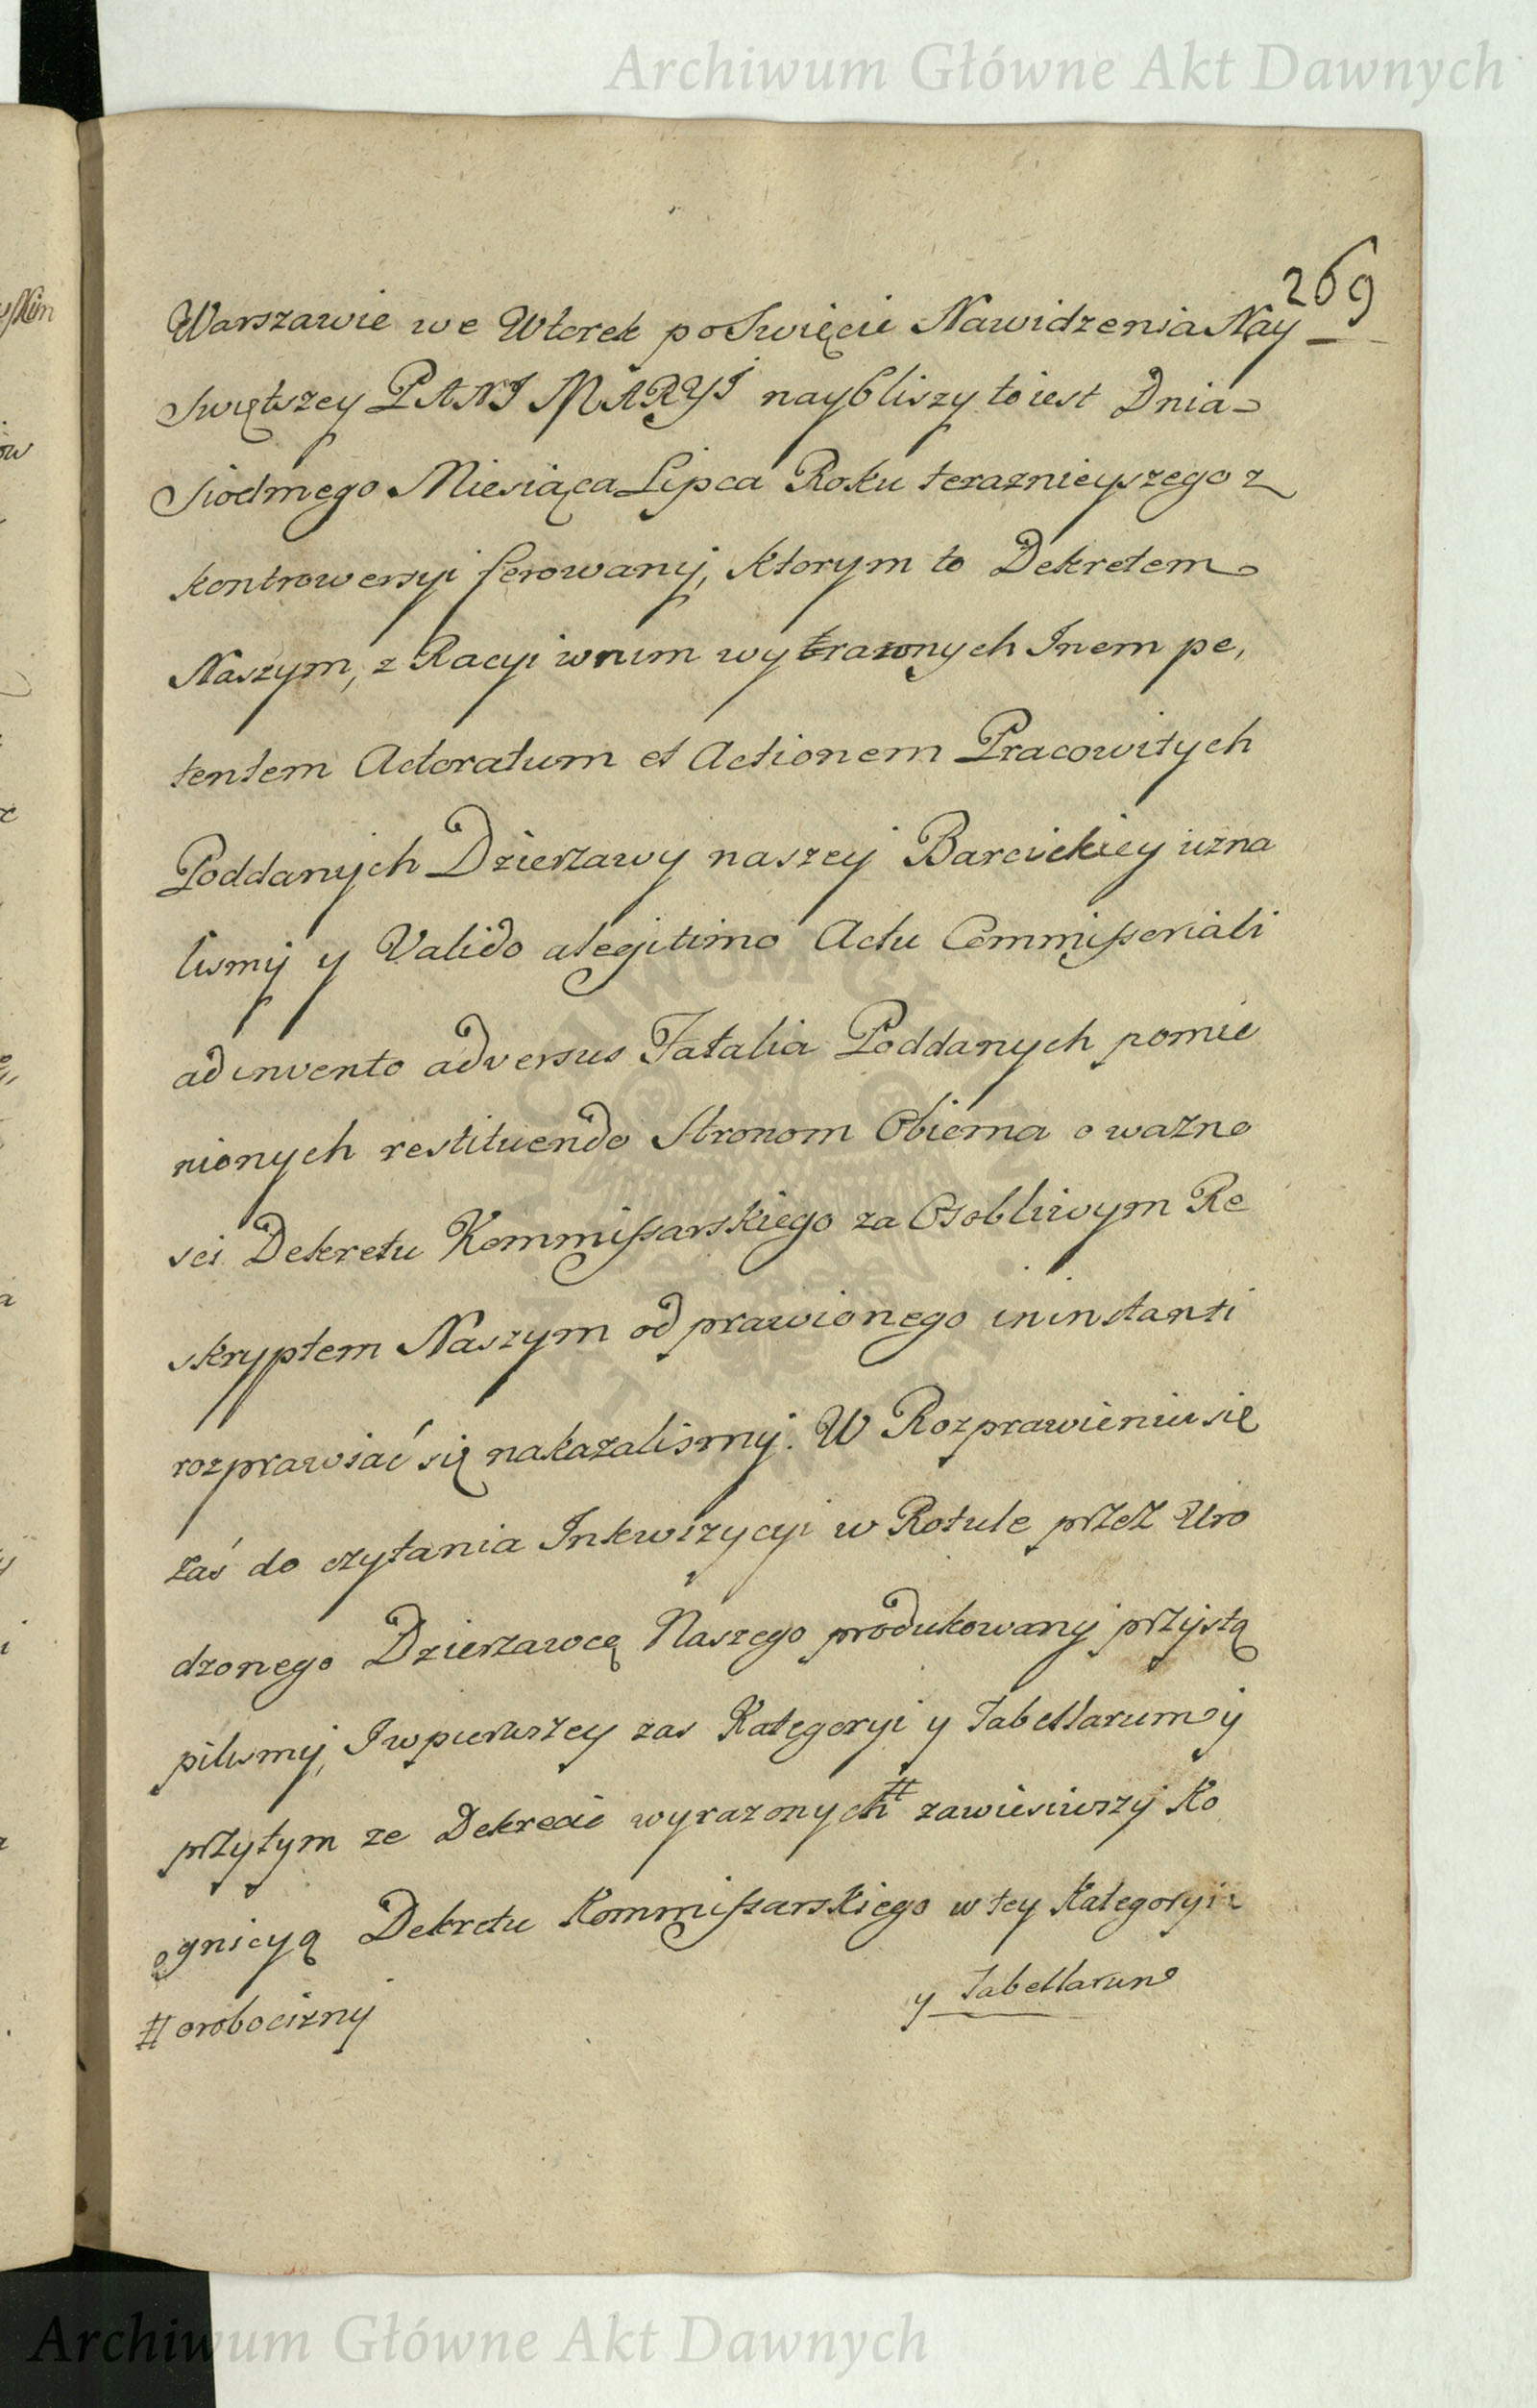 Archiwum Główne Akt Dawnych
269
Warszawie we Wtorek po Swięcie Nawidzenia Nay
Swiętszey PANI MARYI naybliszy to iest Dnia
Siodmego Miesiąca Lipca Roku teraznieyszego z
kontrowersyi ferowany, ktorym to Dekretem
Naszym, z Racyi wnim wyrazonych Inem pe,
tentem Actoratum et Actionem Pracowitych
Poddanych Dzierzawy naszey Barcickiey uzna
lismy y Valido alegitimo Actu Commisseriali
adinvento adversus Fatalia Poddanych pomie
nionych restituendo Stronom Obiema o wazno
sci Dekretu Kommissarskiego za Osobliwym Re
skryptem Naszym odprawionego in instanti
rozprawiać się nakazalismy. W Rozprawieniu się
zaś do czytania Inkwizycyi w Rotule przez Uro
dzonego Dzierzawcę Naszego produkowany przystą
pilismy, I wpierwszey zas Kategoryi y Tabellarum y
przytym ze Dekrecie wyrazonych # zawiesiwszy Ko
gnicyą Dekretu Kommissarskiego w tey Kategoryi
y Tabellarum
# orobocizny
Archiwum Główne Akt Dawnych